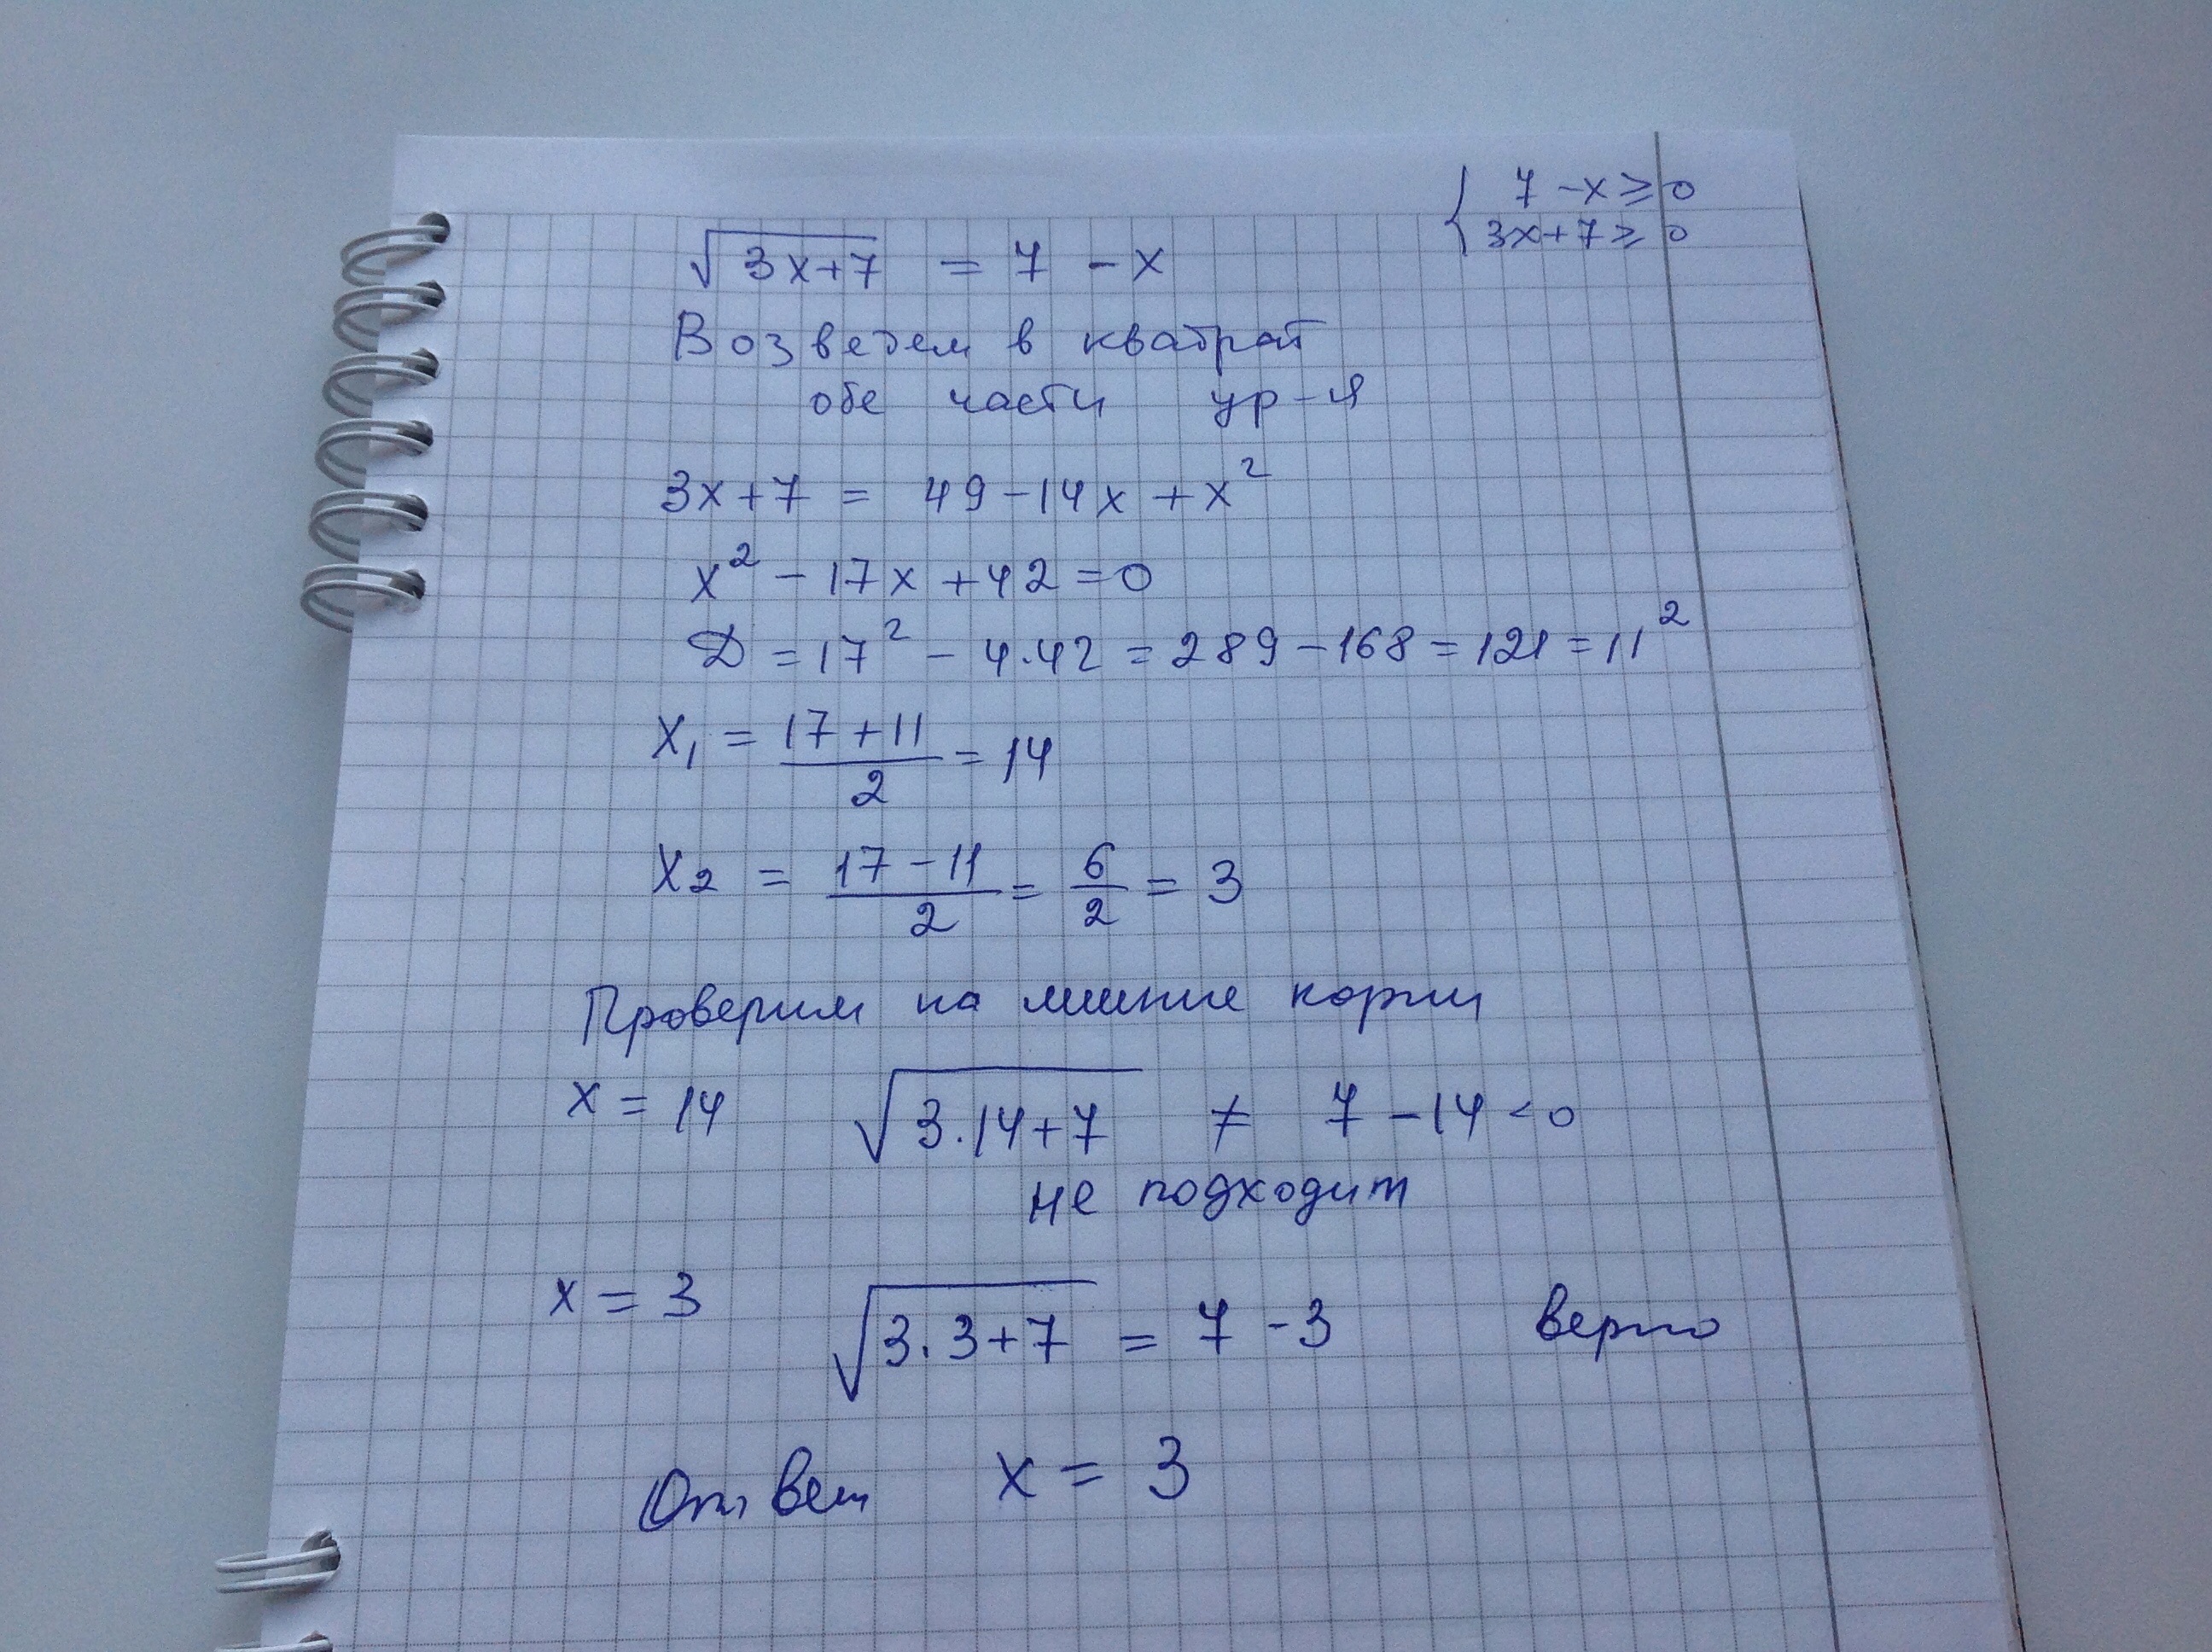 { 7 - x ≥ 0
3x+7 ≥ 0
√(3x+7) = 7 - x
Возведем в квадрат
обе части ур-я
3x+7 = 49-14x+x²
x² - 17x + 42 = 0
D = 17² - 4·42 = 289 - 168 = 121 = 11²
x₁ = (17+11)/2 = 14
x₂ = (17-11)/2 = 6/2 = 3
Проверим на лишние корни
x = 14 √(3·14+7) ≠ 7 - 14 < 0
не подходит
x = 3 √(3·3+7) = 7 - 3 верно
Ответ x = 3